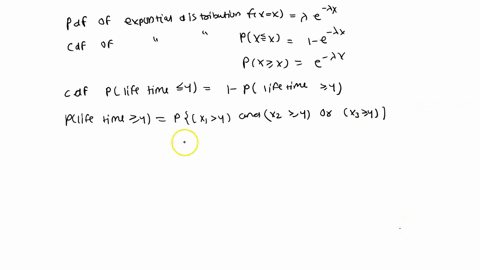 Pdf of exponential distribution f(x=x) = λ e^{-λx}
cdf of " " P(x≤x) = 1-e^{-λx}
P(x≥x) = e^{-λx}
cdf P(life time ≤y) = 1- P( life time ≥y)
P(life time ≥y) = P{(x1>y) and (x2 ≥y) or (x3≥y)]